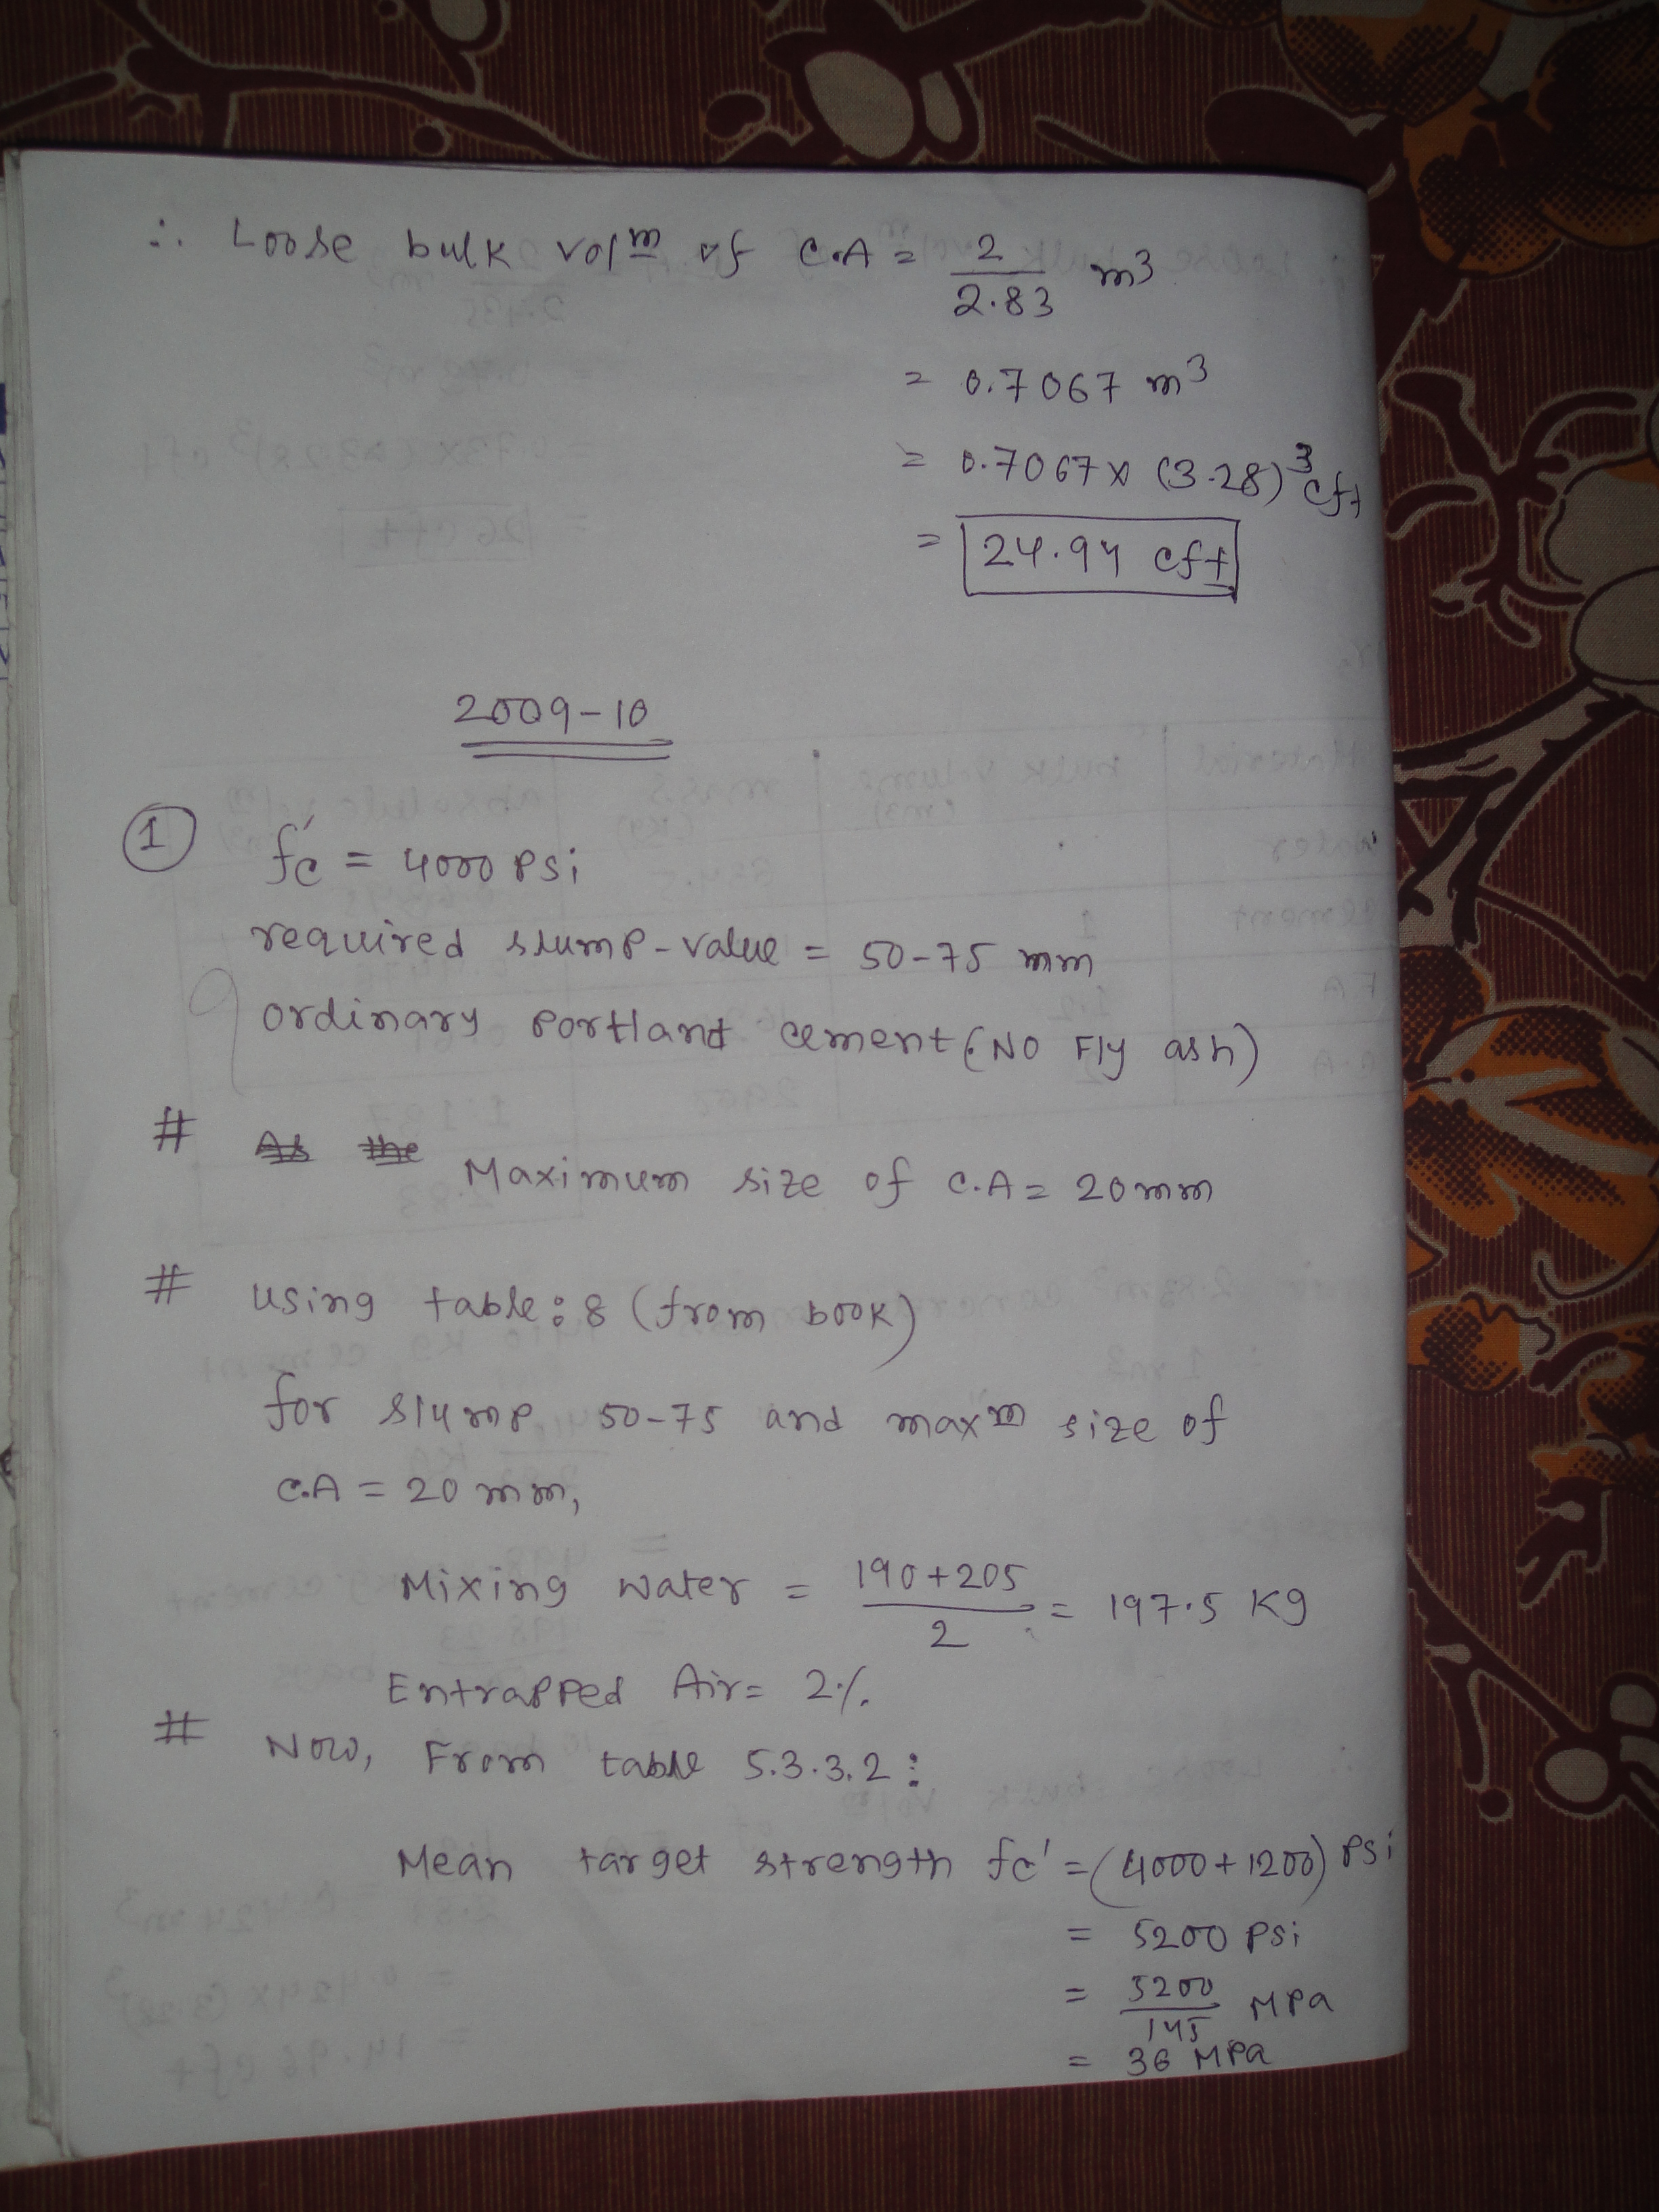 ∴ Loose bulk volm of C.A = 2/2.83 m³
= 0.7067 m³
= 0.7067 x (3.28)³ cft
= 24.94 cft
2009-10
1 fc' = 4000 psi
required slump-value = 50-75 mm
ordinary portland cement (NO Fly ash)
# As the Maximum size of C.A = 20 mm
# Using table: 8 (from book)
for slump 50-75 and maxm size of
C.A = 20 mm,
Mixing water = 190+205/2 = 197.5 Kg
Entrapped Air = 2%
# Now, From table 5.3.3.2:
Mean target strength fc' = (4000+1200) psi
= 5200 psi
= 5200/145 MPa
= 36 MPa